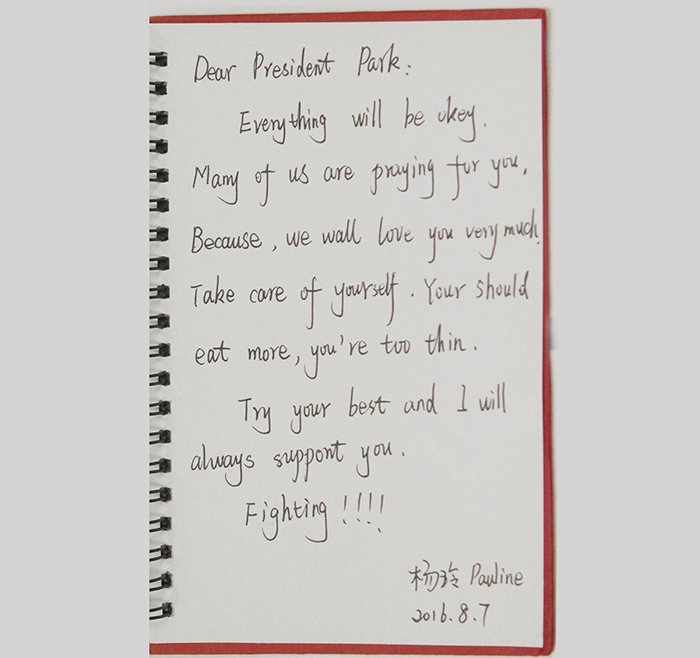 Dear President Park:
Everything will be okey.
Many of us are praying for you.
Because, we wall love you very much.
Take care of yourself. Your should
eat more, you're too thin.
Try your best and I will
always support you.
Fighting!!!!
杨玲 Pauline
2016.8.7